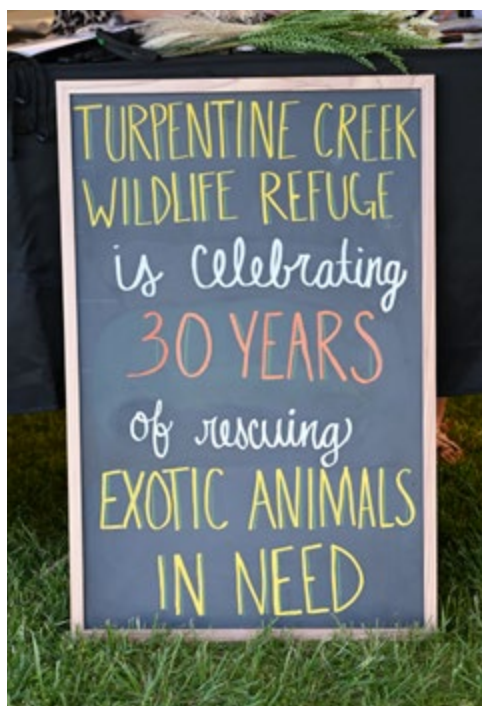 TURPENTINE CREEK
WILDLIFE REFUGE
is celebrating
30 YEARS
of rescuing
EXOTIC ANIMALS
IN NEED